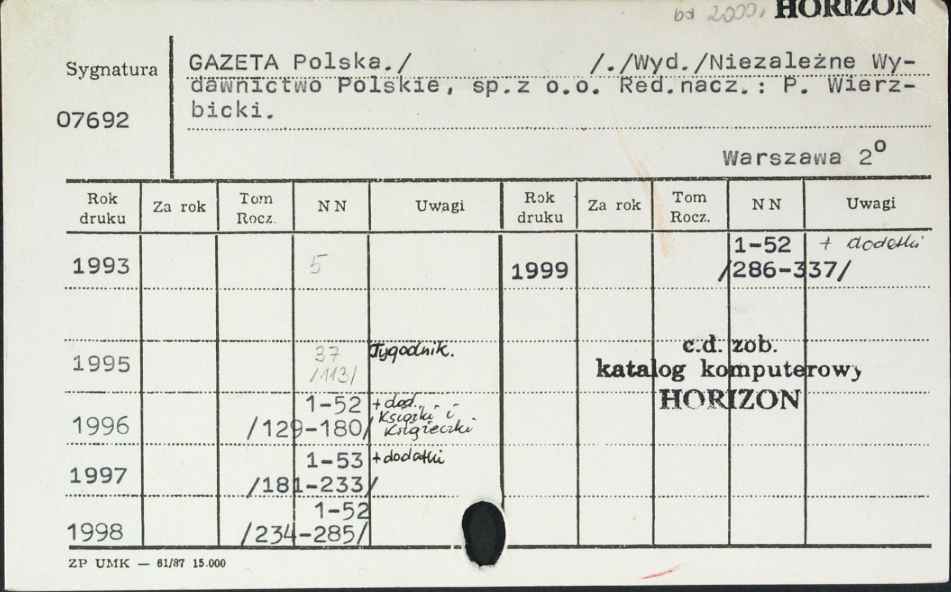 od 2000, HORIZON
Sygnatura
07692
GAZETA Polska./ /./Wyd./Niezależne Wy-
dawnictwo Polskie, sp.z o.o. Red.nacz.: P. Wierz-
bicki.
Warszawa 2º
Rok druku Za rok Tom Rocz. NN Uwagi Rok druku Za rok Tom Rocz. NN Uwagi
1993 5 1999 1-52 + dodatki
/286-337/
1995 37 Tygodnik.
/113/
c.d. zob.
katalog komputerowy
HORIZON
1996 1-52 + dod.
/129-180/ Książki i
Książeczki
1997 1-53 + dodatki
/181-233/
1998 1-52
/234-285/
ZP UMK — 61/87 15.000